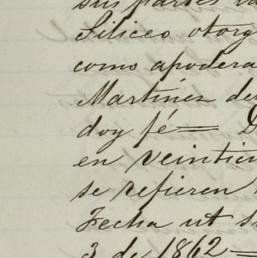 sus partes
Siliceo otorg
como apodera
Martinez de
doy fé = D
en veintici
se refieren
Fecha ut s
3 de 1862 =